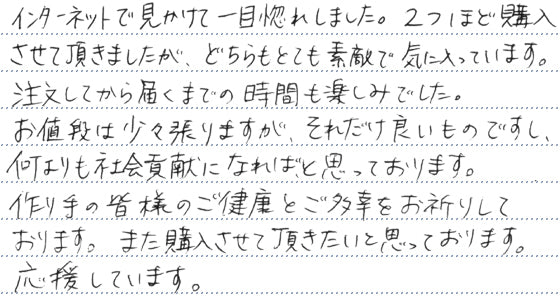 インターネットで見かけて一目惚れしました。2つほど購入
させて頂きましたが、どちらもとても素敵で気に入っています。
注文してから届くまでの時間も楽しみでした。
お値段は少々張りますが、それだけ良いものですし、
何よりも社会貢献になればと思っております。
作り手の皆様のご健康とご多幸をお祈りして
おります。また購入させて頂きたいと思っております。
応援しています。